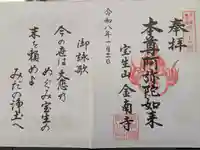 奉拝
令和八年一月二日
本尊阿弥陀如来
宝生山 金南寺
御詠歌
今の世は大悲の
めぐみ宝生の
末を頼めよ
みだの浄土へ